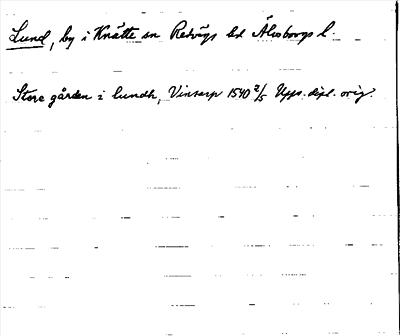 Lund, by i Knätte sn Redvägs hd Älvsborgs l.
Store gården i lundh, Vinsarp 1540 2/5 Upps. dipl. orig.